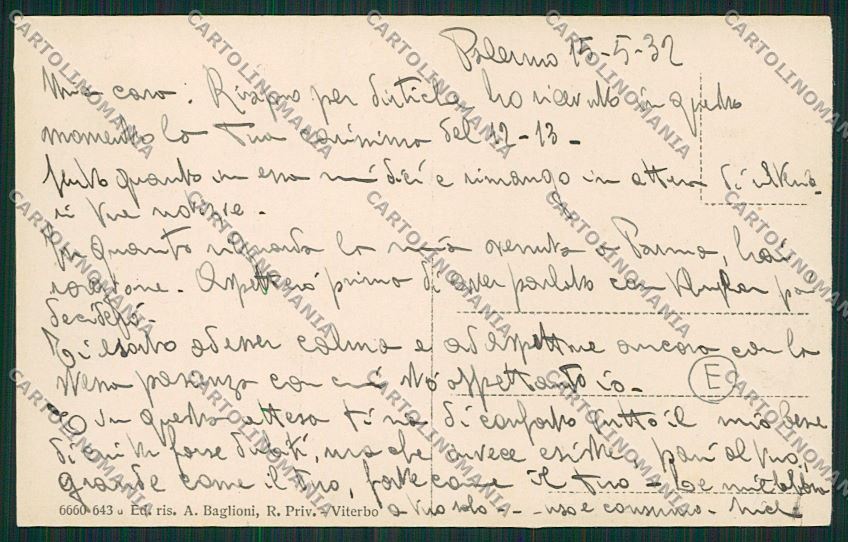 Palermo 15-5-32
Mia cara: Risoguo per dirti che ho ricevuto in questo
momento la tua carissima del 12-13-
quanto in essa mi dici e rimango in attesa di
tue notizie.
Per quanto riguarda la mia venuta a Parma, hai
ragione. Aspetterò prima di aver parlato con poi
deciderò.
Ti esorto ad esser calma e ad aspettare ancora con la
stessa pazienza con cui stò aspettando io.
E in questa attesa ti sia di conforto tutto il mio bene
di cui tu forse dubiti, ma che invece esiste, pari al tuo,
grande come il tuo, forte come il tuo -
a tuo solo - uso e consumo.
E
6660-643 Ed. ris. A. Baglioni, R. Priv. - Viterbo
CARTOLINOMANIA